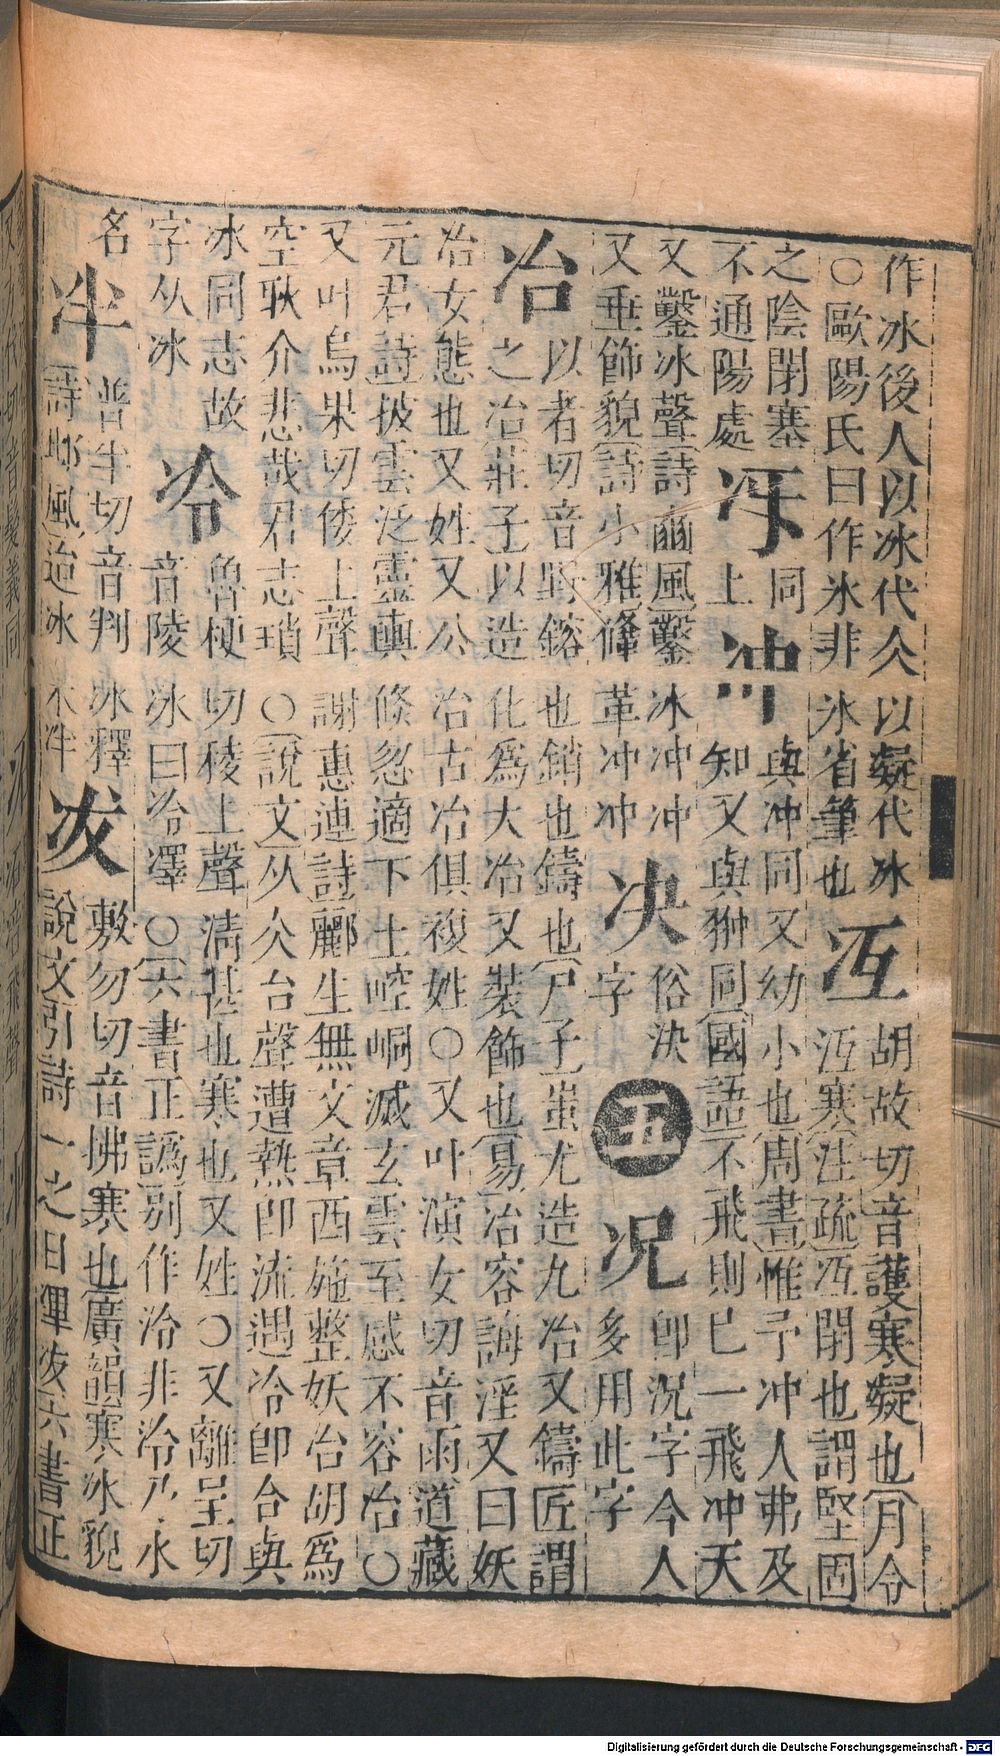 作冰後人以冰代仌以凝代冰
○歐陽氏曰作氷非氷省筆也
冱
胡故切音護寒凝也月令
沍寒注疏冱閉也謂堅固
之陰閉塞
不通陽處
冴
同
上
冲
與沖同又幼小也周書惟予冲人弗及
知又與翀同國語不飛則已一飛冲天
又鑿冰聲詩豳風鑿冰冲冲
又垂飾貌詩小雅鞗革冲冲
决
俗決
字
五
况
即況字今人
多用此字
冶
以者切音野鎔也銷也鑄也尸子蚩尤造九冶又鑄匠謂
之冶莊子以造化爲大冶又裝飾也易冶容誨淫又曰妖
冶女態也又姓又公冶古冶俱複姓○又叶演女切音雨道藏
元君詩披雲泛靈輿倏忽適下土崆峒滅玄雲至感不容冶○
又叶烏果切倭上聲謝惠連詩酈生無文章西施整妖冶胡爲
空耿介悲哉君志瑣○說文从仌台聲遭熱即流遇冷即合與
冰同志故
字从冰
冷
魯梗切稜上聲清甚也寒也又姓○又離呈切
音陵氷曰冷澤○六書正譌別作泠非泠乃水
名
冸
普半切音判冰釋
詩邶風迨冰未泮
冹
敷勿切音拂寒也廣韻寒冰貌
說文引詩一之日㓖冹六書正
Digitalisierung gefördert durch die Deutsche Forschungsgemeinschaft - DFG